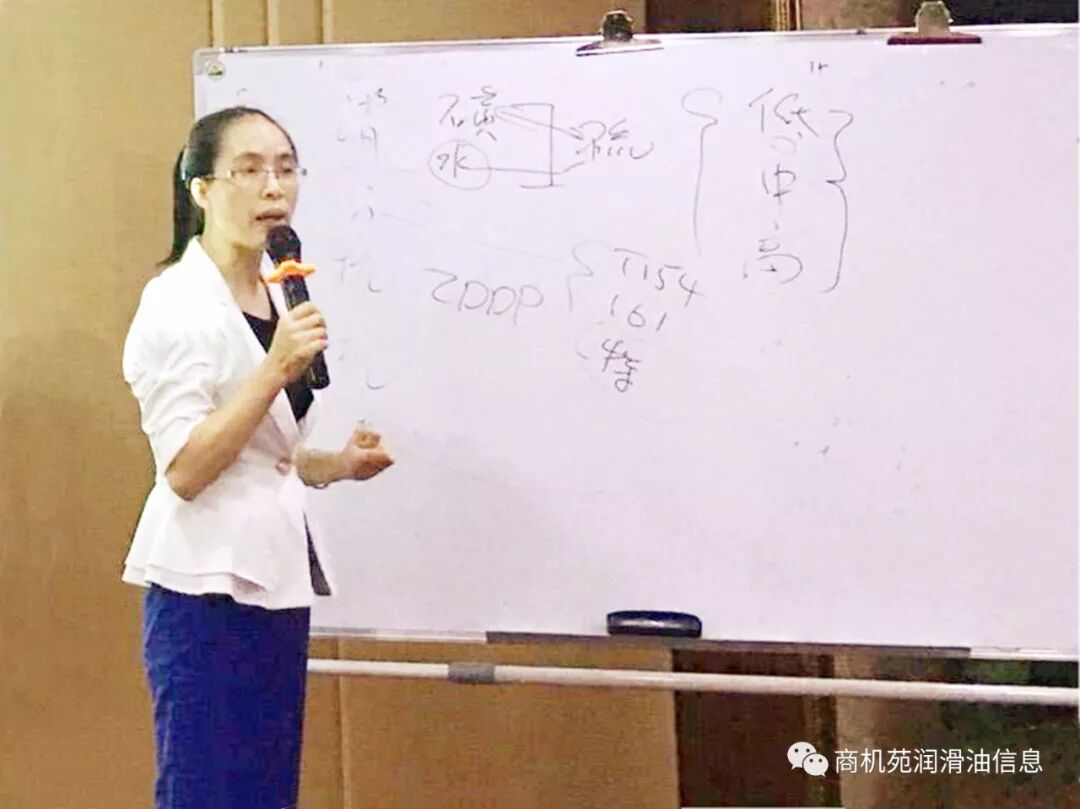 清 磺 低
水 中
分 高
抗 ZDDP T154
161
等
商机苑润滑油信息